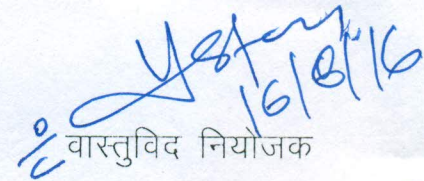 16/8/16
वास्तुविद नियोजक